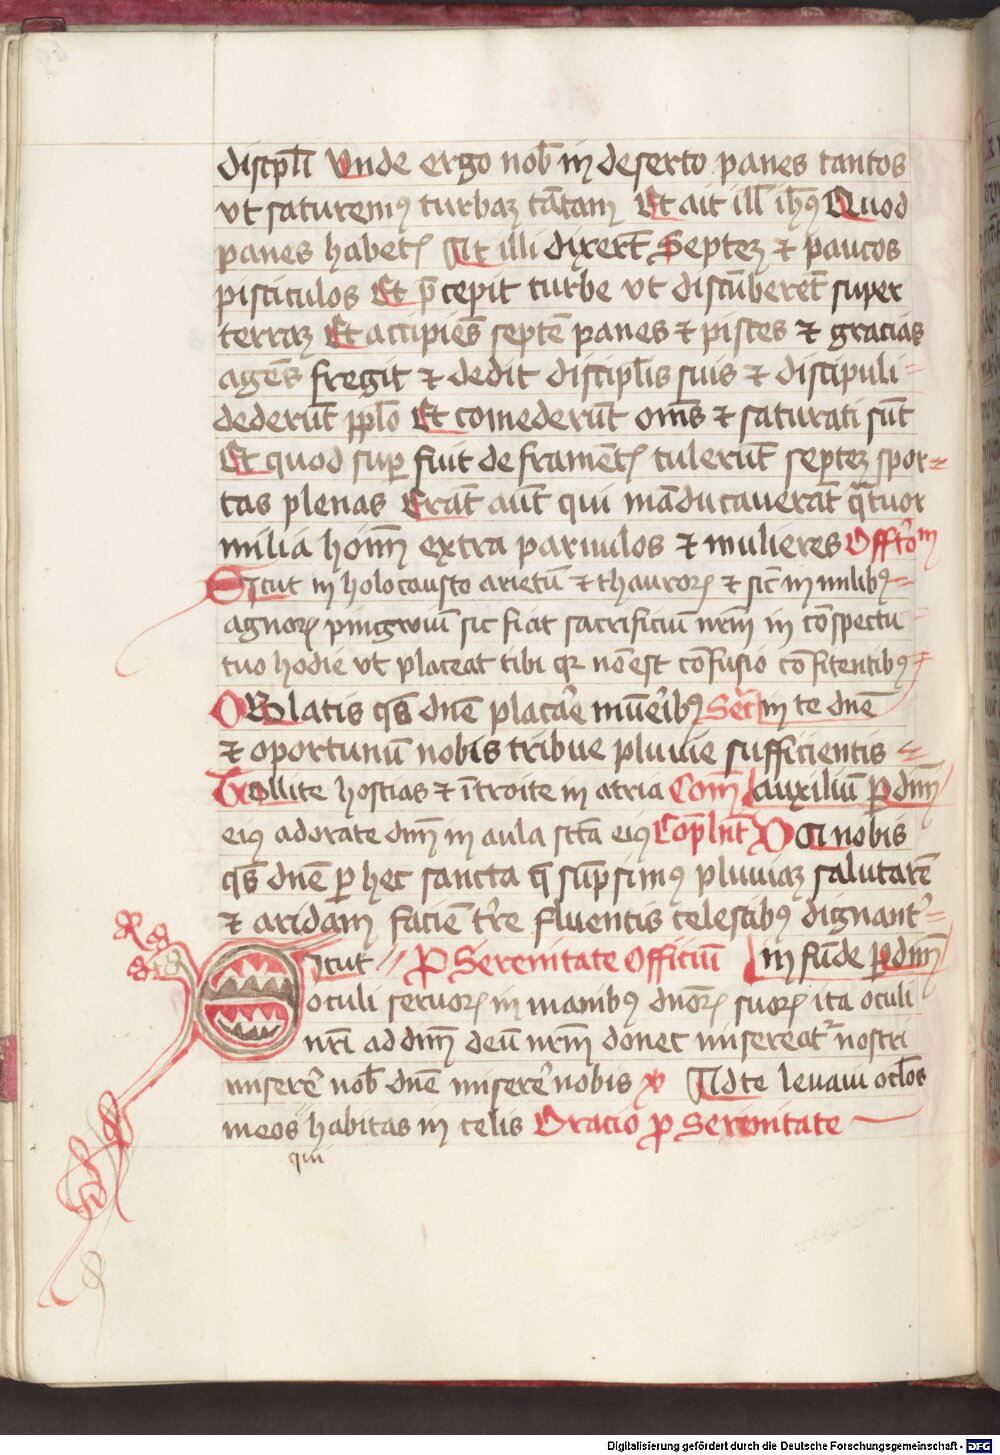 discpłi Vnde ergo nob̄ in deserto panes tantos
vt saturemꝰ turbaꝫ tātam Et ait ill̄ ih̄ꝰ Quod
panes habetꝭ At illi dixert̄ Septeꝫ ⁊ paucos
pisciculos Et p̄cepit turbe vt discūberent̄ super
terraꝫ Et accipiēs septē panes ⁊ pisces ⁊ gracias
agēs fregit ⁊ dedit discipl̄is suis ⁊ discipuli
dederūt ppl̄o Et comederūt om̄s ⁊ saturati sūt
Et quod suꝑ fuit de framētꝭ tulerūt septeꝫ spor-
tas plenas Erāt aūt qui māducauerāt q̄tuor
milia hoīm extra paruulos ⁊ mulieres Offr̄om
Sicut in holocausto arietū ⁊ thaurorꝝ ⁊ sic̄ in milibꝰ
agnorꝝ pingwiū sic fiat sacrificiū nr̄m in cōspectu
tuo hodie vt placeat tibi qꝛ nō est cōfusio cōfitentibꝰ
OBlatis qs̄ dn̄e placa͛e mūe͛ibꝰ Secr̄ in te dn̄e
⁊ oportunū nobis tribue pluuie sufficientis
Tollite hostias ⁊ ītroite in atria Com̄ auxiliū ꝑ dn̄m
eiꝰ adorate dn̄m in aula sct̄a eiꝰ Cōplnt̄ DA nobis
qs̄ dn̄e ꝑ hec sancta q̄ sūpsimꝰ pluuiaꝫ salutarē
⁊ aridam faciē tr̄e fluentis celestibꝰ dignant͛
Sicut ꝓ Serenitate Officiū in fūde ꝑ dn̄m
oculi seruorꝝ in manibꝰ dn̄orꝝ suorꝝ ita oculi
nr̄i ad dn̄m deū nr̄m donec misereat͛ nostri
misere͛ nob̄ dn̄e misere͛ nobis v Ad te leuaui ocl̄os
meos habitas in celis Oracio ꝓ Serenitate
qui
Digitalisierung gefördert durch die Deutsche Forschungsgemeinschaft - DFG